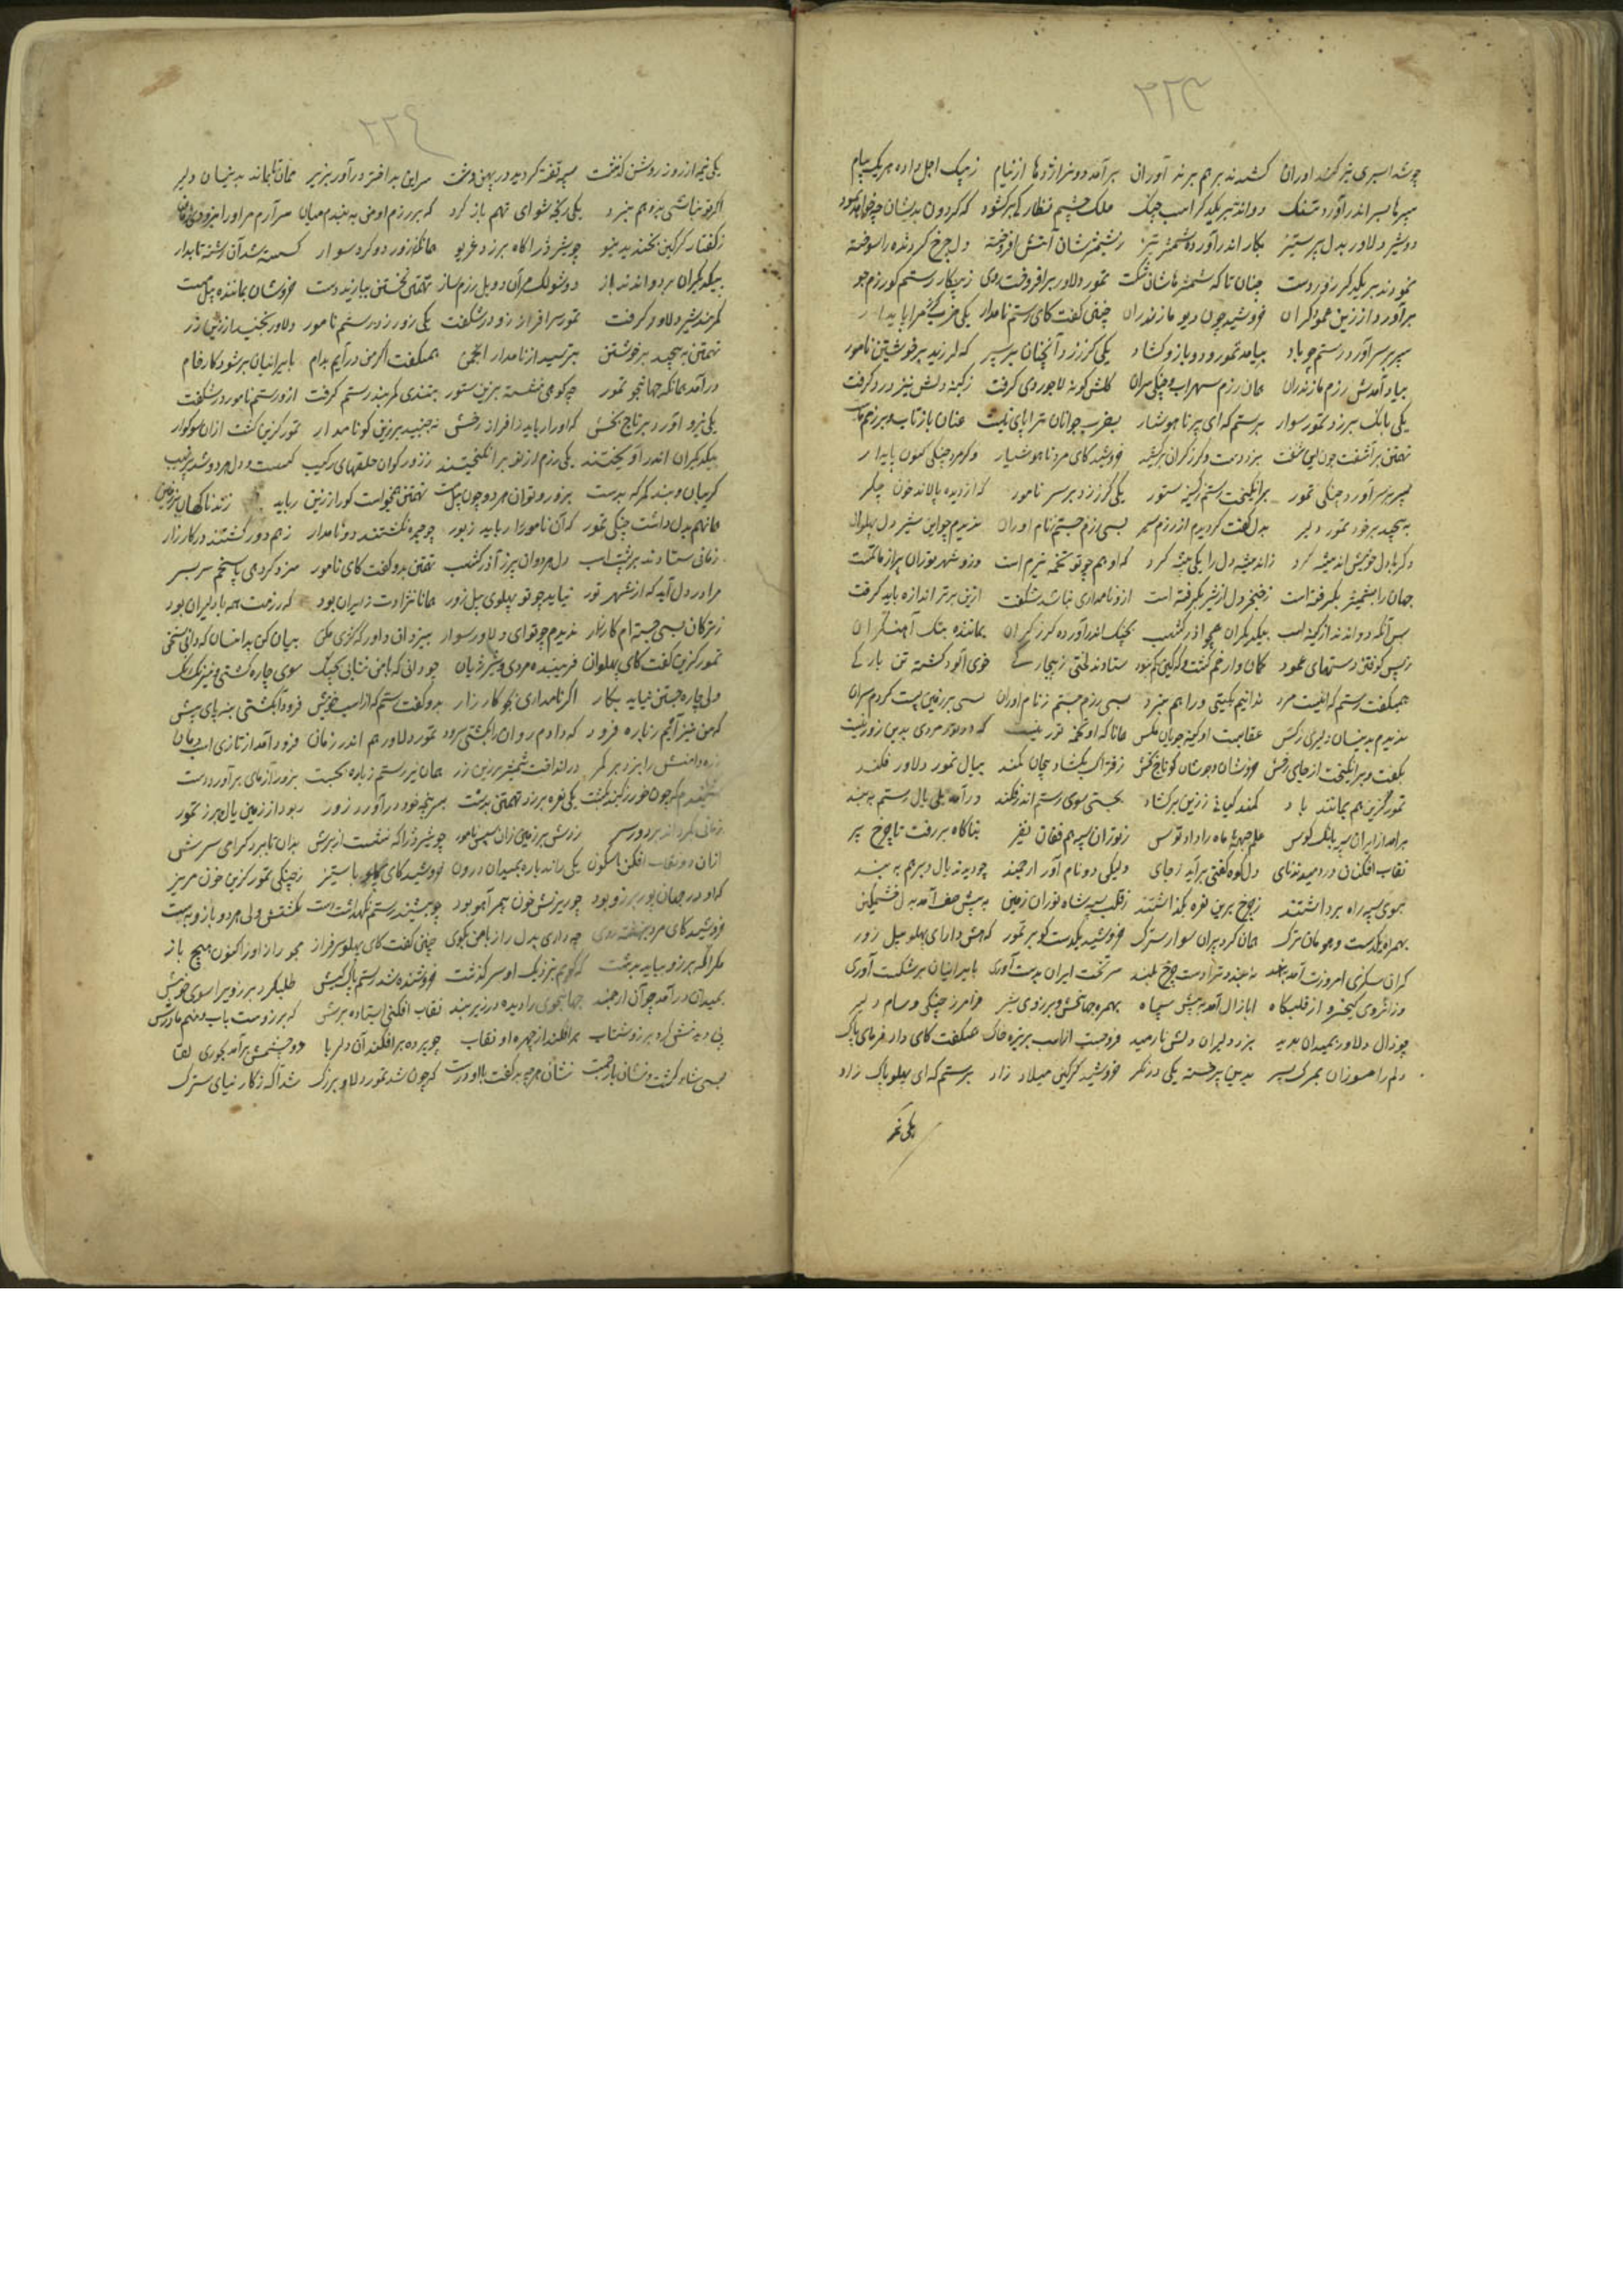 ۲۲۵
چو شد اسپری نیزه کند اوران گشدند بر هم پرند آوران برآمد دو تیز اژدها از نیام ز پیک اجل داده هر یک پیام
سپرها بسر اندر آورد تنگ دواندند بر یکدگر اسب جنگ ملک چشم نظاره بر گشود که گردون بدیشان چه خواهد نمود
دو شیر دلاور بدل پر ستیز بکار اندر آورده شمشیر تیز ز شمشیرشان آتش افروخته دل چرخ گردنده را سوخته
نمودند بر یکدگر زور دست چنان تا که شمشیرهاشان شکست تمور دلاور برافروخت روی ز پیکار رستم گو رزم جو
برآورد از زین عمود گران خروشید چون دیو مازندران چنین گفت کای رستم نامدار یکی ضرب گرز مرا پایدار
سپر بر سر آورد رستم چو باد بیامد تمور و دو بازو گشاد یکی گرز زد آنچنان بر سپر که لرزید بر خویشتن نامور
بیاد آمدش رزم مازندران همان رزم سهراب و جنگ سران گلش گونه لاجوردی گرفت ز کینه دلش نیز درد گرفت
یکی بانگ برزد تمور سوار برستم که ای پیر ناهوشیار بضرب جوانان ترا پای نیست عنان باز تاب
تهمتن برآشفت چون بزد دست و گرز گران برکشید خروشید کای مرد ناهوشیار و گر مرد جنگی کنون پایدار
سپر بر سر آورد جنگی تمور برانگیخت رستم ز کینه ستور یکی گرز زد بر سر نامور که از دیده پالاند خون جگر
به پیچید بر خود تمور دلیر بدل گفت گردیدم از رزم سیر بسی رزم جستم ز نام اوران ندیدم چو این شیر دل پهلوان
دگر با دل خویش اندیشه کرد ز اندیشه دل را یکی پیشه کرد که او هم چو تو تخمه نیرم است وزو شهر توران پر از ماتمست
جهان را بشمشیر بگرفته است ز خنجر دل از شیر بگرفته است ازو نامداری نباشد شگفت ازین برتر اندازه باید گرفت
پس آنگه دواندند از کینه اسب بیکدیگران همچو آذرگشسب بچنگ اندر آورده گرز گران بمانند پتک آهنگران
ز بس کوفتن دستهای عمود کمان وار خم گشت ستادند لختی ز پیچارگی خوی آلود گشته تن بارگی
همیگفت رستم که اینست مرد ندانم بگیتی ورا هم نبرد بسی رزم جستم ز نام اوران بسی بر زمین پست کردم سران
ندیدم بدینسان دلیری ز کس عقابست او کینه جویان مگس همانا که او تخمه تور نیست که در تور مردی بدین زور نیست
بگفت و برانگیخت از جای رخش خروشان و جوشان گو تاج بخش ز فتراک بگشاد پیچان کمند بیال تمور دلاور فکند
تمور گزین هم بمانند باد کمند کیانی ز زین برگشاد بچستی سوی رستم اندر فکند درآمد یلی یال رستم به بند
برآمد از ایران سپه بانگ کوس علم جبهه ماه را داد بوس ز توران سپه هم فغان نفیر بناگاه بر رفت تا چرخ پیر
نقاب افکنان در دمیدند نای دل کوه گفتی برآید ز جای ولیکن دو نام آور ارجمند چو دیدند یال دو پرهم به بند
بسوی سپه راه برداشتند ز چرخ برین نعره بگذاشتند ز قلب سپه شاه توران زمین به پیش صف آمد بدل خشمگین
بهمراه یکدست و هومان ترک همان گرد پیران سوار سترگ خروشید یکدست کو بر تمور که هش دار ای پهلو پیل زور
گران سگزی امروزت آمد ببند به بند و تراست چرخ بلند سر تخت ایران بدست آوری بایرانیان بر شکست آوری
وز آنروی کیخسرو از قلبگاه ابا زال آمد به پیش سپاه بهمره جهانبخش و برزوی شیر فرامرز جنگی و سام دلیر
چو زال دلاور بمیدان بدید بزد دلیران دلش نارمید فرو جست از اسب بر تیره خاک همیگفت کای داور پاک
دلم را مسوزان بمرگ پسر بدین پیر خسته یکی درنگر خروشید گرگین میلاد زاد برستم که ای پهلو پاک زاد
یکی نیمه
۲۲۶
یکی نیمه از روز روشن گذشت سپر تفته گردیده در پهن دشت سر این بد اختر در آور بزیر ممان تا بماند بدینسان دلیر
اگر تو نباشی بدو هم نبرد یکی رنجه شو ای تهم باز گرد که بر رزم او من به بندم میان سرآرم مر او را
ز گفتار گرگین بخندید نیو چو شیر ژرا گاه برزد غریو همانگه ز زور دو گرد سوار گسسته شد آن رشته تابدار
بیکدیگران بر دواندند باز دو شولک سران دو یل رزم ساز تهمتن نخستین بیازید دست خروشان بمانند پیل مست
کمربند شیر دلاور گرفت تمور سرافراز زو در شگفت یکی زور زد رستم نامور دلاور نجنبید از زین زر
تهمتن به پیچید بر خویشتن بترسید از نامدار انجمن همیگفت اگر من درآیم بدام بایرانیان بر شود کار خام
درآمد همانگه جهانجو تمور چو کوهی نشسته بزین ستور بتندی کمربند رستم گرفت ازو رستم نامور در شگفت
یکی نیرو آورد بر تاج بخش که او را رباید ز افراز رخش نجنبید بر زین گو نامدار تمور گزین گشت ازان سوگوار
بیکدیگران اندر آویختند یکی رزم از نو برانگیختند ز زور گوان حلقهای رکیب گسست و دل هر دو شد پر نهیب
گریبان و بند کمر که بدست بزور و توان هر دو چون پیل مست تهمتن همیخواست کو را ز زین رباید زند ناگهان بر زمین
همانهم بدل داشت جنگی تمور که آن نامور را رباید ز بور چو چیره نگشتند دو نامدار ز هم دور گشتند در کارزار
زمانی ستادند بر پشت اسب دل هر دوان پر ز آذرگشسب تهمتن بدو گفت کای نامور سزد گر دهی پاسخم سربسر
مرا در دل آید که از شهر تور نیاید چو تو پهلوی پیل زور همانا نژادت ز ایران بود که رزمت همه با دلیران بود
ز ترکان بسی جسته ام کارزار ندیدم چو تو ای دلاور سوار بیزدان داور که کژی مکن بیان کن بدانسان که دانی سخن
تمور گزین گفت کای پهلوان فریبنده مردی و شیر ژیان چو دانی که با من نتابی بجنگ سوی چاره گشتی و نیرنگ و رنگ
ولی چاره جستن نیاید بکار اگر نامداری بکن کارزار بدو گفت رستم که از اسب خویش فرود آ بکشتی بنه پای پیش
که من نیز آیم ز باره فرود که دادم روان را بکشتی درود تمور دلاور هم اندر زمان فرود آمد از تازی اسب دمان
زره دامنش را بزد بر کمر در انداخت شمشیر بر زین زر همان نیز رستم ز باره بجست بزور آزمای برآورد دست
یکی نعره برزد تهمتن بدشت سر پنجه خود درآورد زور ربود از زمین یال برز تمور
زمانی بگرداند بر دور سر زدش بر زمین زان سپس نامور چو شیر ژیان که بنشست از برش بدان تا ببرد گرامی سرش
ازان دو نقاب افکن یکی راند باره بمیدان درون خروشید کای پهلو با ستیز ز جنگی تمور گزین خون مریز
که او در جهان پور برزو بود چو ریزش خون بهر آهو بود چو بشنید رستم نگهداشت دست نکشتش ولی هر دو بازو ببست
خروشید کای مرد بنهفته روی چه داری بدل راز با من بگوی چنین گفت کای پهلو سرفراز مجو راز او را کنون هیچ باز
مگر آنکه برزو بیاید بدشت که گویم بنزدیک او سرگذشت فروشنده شد رستم پاک کیش طلب کرد برزو یرا سوی خویش
بمیدان درآمد چو آن ارجمند جهانجوی را دیده در زیر بند نقاب افکنی ایستاده برش که برزوست باب و منم مادرش
پی دیدنش کرد برزو شتاب برافکند از چهره او نقاب چو پرده برافکند آن دلربا دو چشمش برآمد بحوری لقا
بسی شاد گشت و نشان باز جست نشان مهره برگفت با او درست که چون شد تمور دلاور بزرگ شد آگه ز کار نیای سترگ